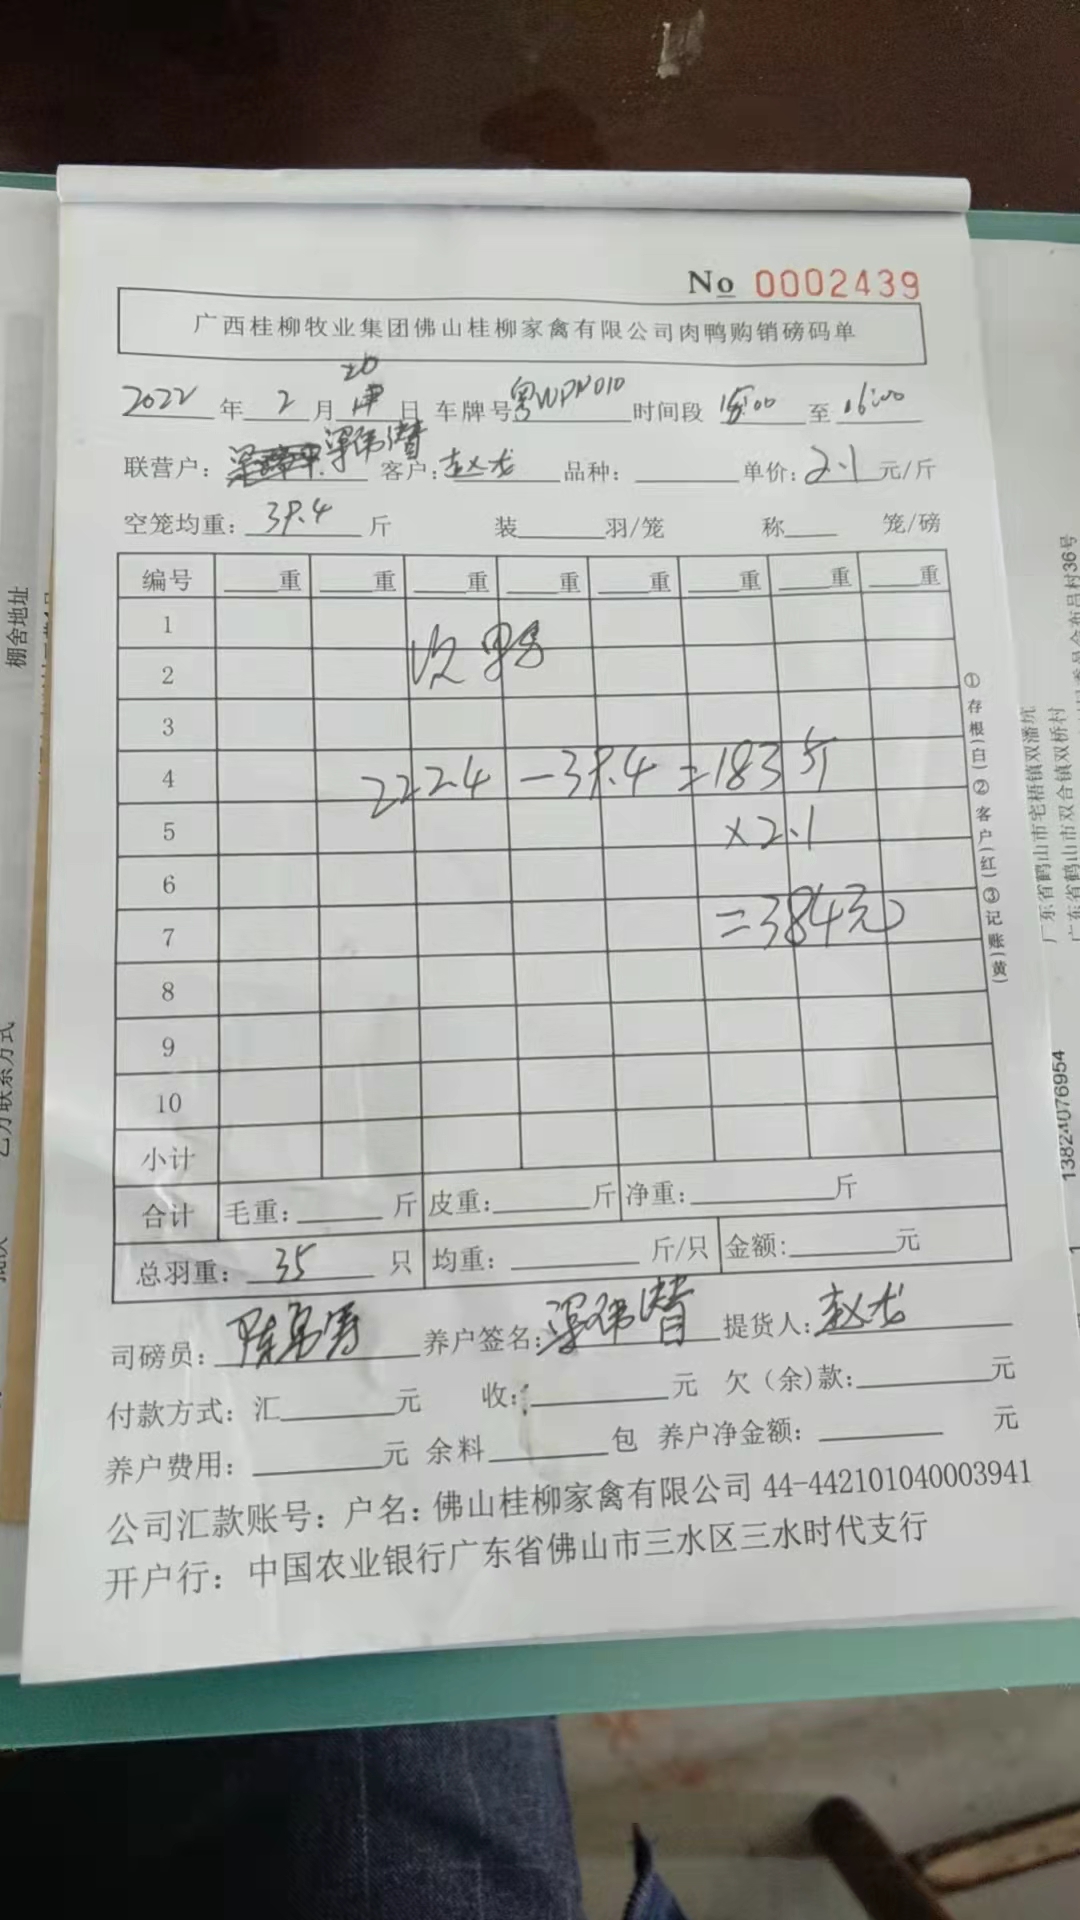 No 0002439
广西桂柳牧业集团佛山桂柳家禽有限公司肉鸭购销磅码单
2022 年 2 月 26 日 车牌号 粤WPN010 时间段 15:00 至 16:00
联营户: 客户: 赵龙 品种: 单价: 2.1 元/斤
空笼均重: 39.4 斤 装 羽/笼 称 笼/磅
编号 重 重 重 重 重 重 重 重
1
2
次鸭
3
4
222.4 - 39.4 = 183 斤
5
×2.1
6
7
=384元
8
9
10
小计
合计 毛重: 斤 皮重: 斤 净重: 斤
总羽重: 35 只 均重: 斤/只 金额: 元
司磅员: 养户签名: 提货人: 赵龙
付款方式: 汇 元 收: 元 欠(余)款: 元
养户费用: 元 余料 包 养户净金额: 元
公司汇款账号: 户名: 佛山桂柳家禽有限公司 44-442101040003941
开户行: 中国农业银行广东省佛山市三水区三水时代支行
①存根(白)②客户(红)③记账(黄)
棚舍地址
乙方联系方式
广东省鹤山市宅梧镇双潘坑
广东省鹤山市双合镇双桥村
13824076954